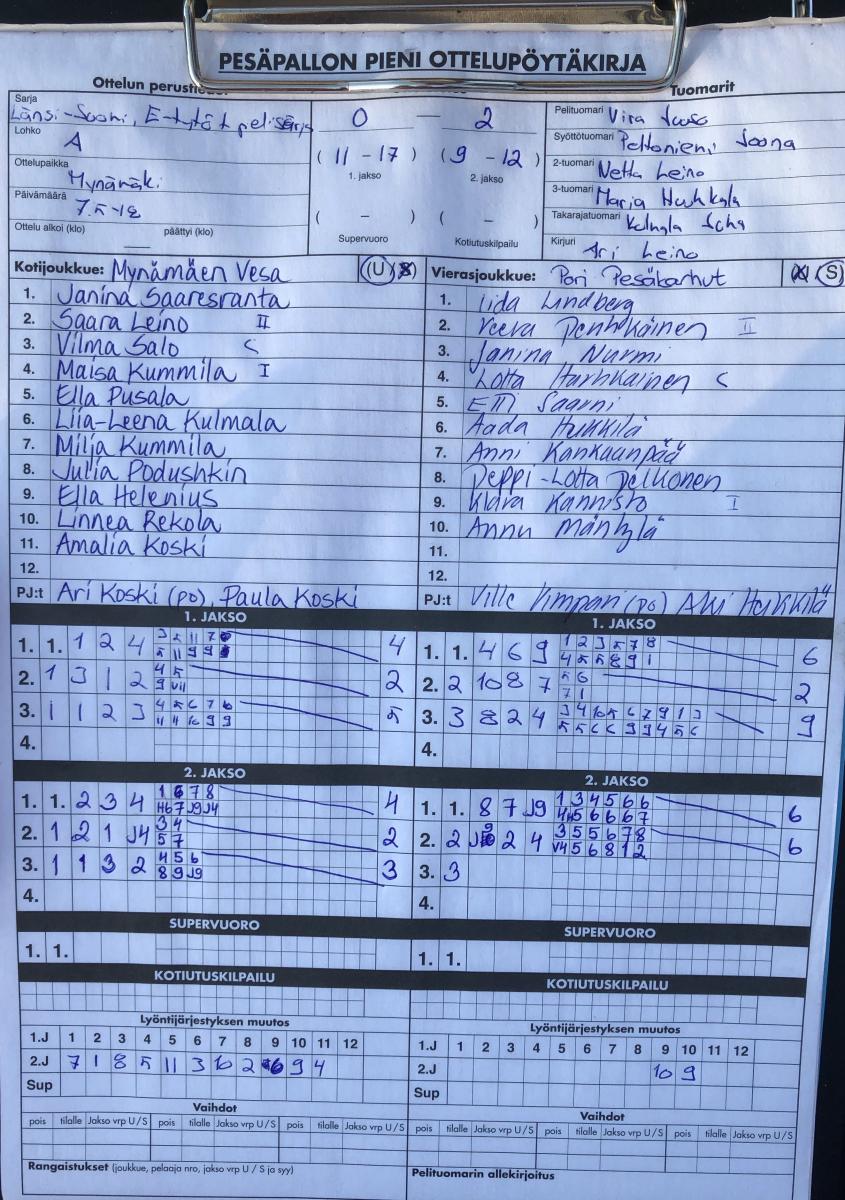 PESÄPALLON PIENI OTTELUPÖYTÄKIRJA
Ottelun
Tuomarit
Sarja
Länsi-Suomi, E-tytöt
Lohko
A
Ottelupaikka
Mynämäki
Päivämäärä
Ottelu alkoi (klo) päättyi (klo)
0 — 2
( 11 - 17 ) ( 9 - 12 )
1. jakso 2. jakso
( - ) ( - )
Supervuoro Kotiutuskilpailu
Pelituomari
Syöttötuomari Peltoniemi Joona
2-tuomari Netta Leino
3-tuomari
Takarajatuomari
Kirjuri Ari Leino
Kotijoukkue: Mynämäen Vesa (U)
1. Janina Saaresranta
2. Saara Leino II
3. Vilma Salo C
4. Maisa Kummila I
5. Ella Pusala
6. Liia-Leena Kulmala
7. Milja Kummila
8. Julia Podushkin
9. Ella Helenius
10. Linnea Rekola
11. Amalia Koski
12.
PJ:t Ari Koski (po), Paula Koski
Vierasjoukkue: Pori Pesäkarhut (S)
1. Iida Lindberg
2. Veera II
3. Janina Nurmi
4. Lotta C
5. Saarni
6. Aada Hukkila
7. Anni Kankaanpää
8. Peppi-Lotta Pelkonen
9. Klara Kannisto I
10. Annu Mäntylä
11.
12.
PJ:t Ville (po) Aki Hukkila
1. JAKSO
1. 1. 1 2 4 4
2. 1 3 1 2 2
3. 1 1 2 3 5
4.
2. JAKSO
1. 1. 2 3 4 1 6 7 8 4
2. 1 2 1 J4 3 4 5 7 2
3. 1 1 3 2 4 5 6 8 9 J9 3
4.
SUPERVUORO
1. 1.
KOTIUTUSKILPAILU
Lyöntijärjestyksen muutos
1.J 1 2 3 4 5 6 7 8 9 10 11 12
2.J 7 1 8 5 11 3 10 2 6 9 4
Sup
Vaihdot
pois tilalle Jakso vrp U / S pois tilalle Jakso vrp U / S pois tilalle Jakso vrp U / S
Rangaistukset (joukkue, pelaaja nro, jakso vrp U / S ja syy)
1. JAKSO
1. 1. 4 6 9 1 2 3 5 7 8 6
2. 2 10 8 7 5 6 7 1 2
3. 3 8 2 4 9
4.
2. JAKSO
1. 1. 8 7 J9 1 3 4 5 6 6 6
2. 2 2 4 3 5 5 6 7 8 6
3. 3
4.
SUPERVUORO
1. 1.
KOTIUTUSKILPAILU
Lyöntijärjestyksen muutos
1.J 1 2 3 4 5 6 7 8 9 10 11 12
2.J 10 9
Sup
Vaihdot
pois tilalle Jakso vrp U / S pois tilalle Jakso vrp U / S pois tilalle Jakso vrp U / S
Pelituomarin allekirjoitus